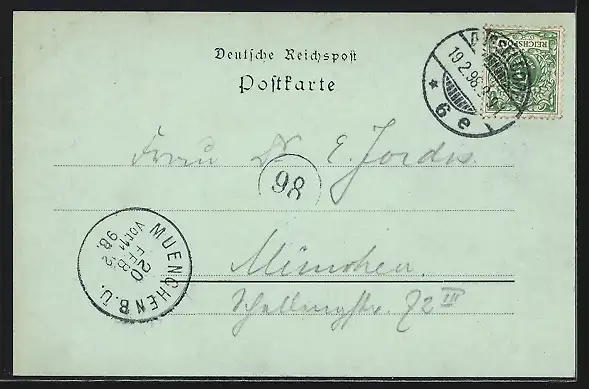 Deutsche Reichspost
Postkarte
REICHSPOST
19.2.98.
* 6 e
Frau Dr E. Jordis
98
München.
Schellingstr. 72 III
MUENCHEN B.U.
VORM 11-12
20 FEB
98.